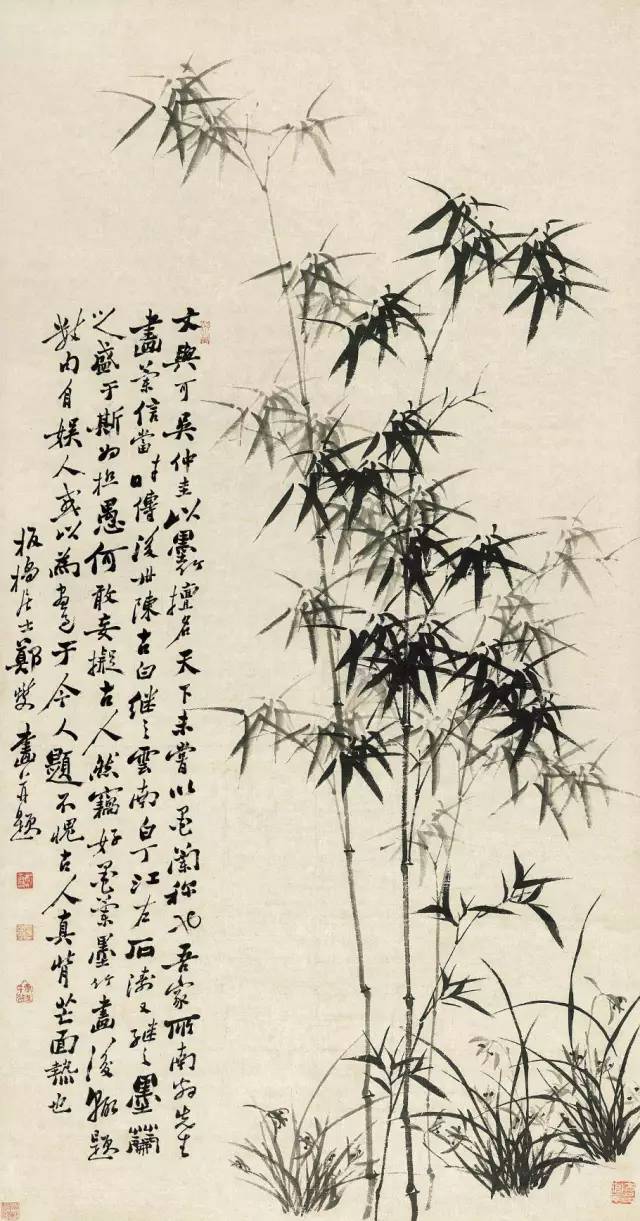 文與可吳仲圭以墨竹擅名天下未嘗以墨蘭称也吾家所南翁先生
畫蘭信當時傳後世陳古白継之雲南白丁江左石濤又継之墨蘭
之盛于斯为極愚何敢妄擬古人然竊好墨蘭墨竹畫後輙題
數自娱人或以為
于今人題不愧古人真背芒面熱也
板橋居士鄭燮畫并題